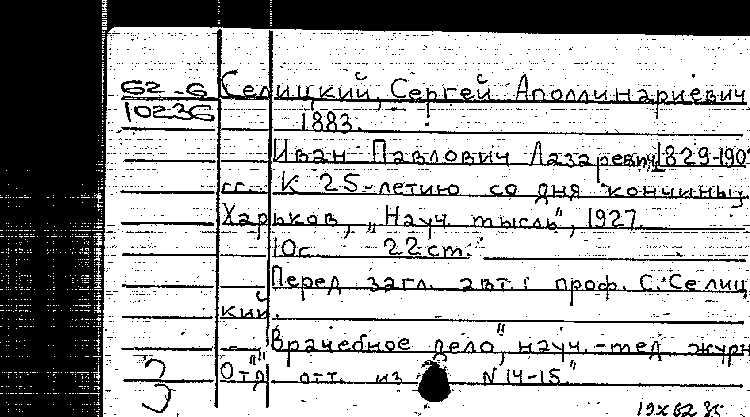 62-6 Селицкий, Сергей Аполлинариевич
10236
1883.
Иван Павлович Лазаревич 1829-190
гг. К 25-летию со дня кончины.
Харьков, "Науч. мысль", 1927.
10с. 22 см.
Перед загл. авт.: проф. С. Селиц
кий.
"Врачебное дело", науч.-мед. журн
Отд. отт. из № 14-15."
3